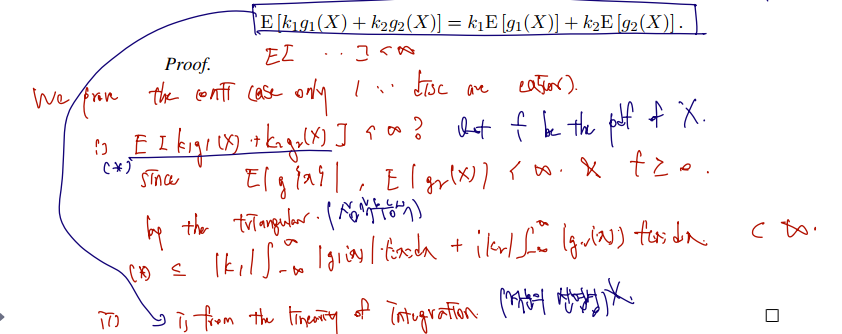 E [k₁g₁(X) + k₂g₂(X)] = k₁E [g₁(X)] + k₂E [g₂(X)] .
Prof. E[ ·· ] < ∞
We prove the conti case only ( ∵ disc are easier).
i) E [k₁g₁(X) + k₂g₂(X)] < ∞? Let f be the pdf of X.
(*) since E|g₁(X)|, E|g₂(X)| < ∞. & f ≥ 0.
by the triangular.
(*) ≤ |k₁| ∫_{-∞}^{∞} |g₁(x)| f(x) dx + |k₂| ∫_{-∞}^{∞} |g₂(x)| f(x) dx < ∞.
ii) is from the linearity of integration